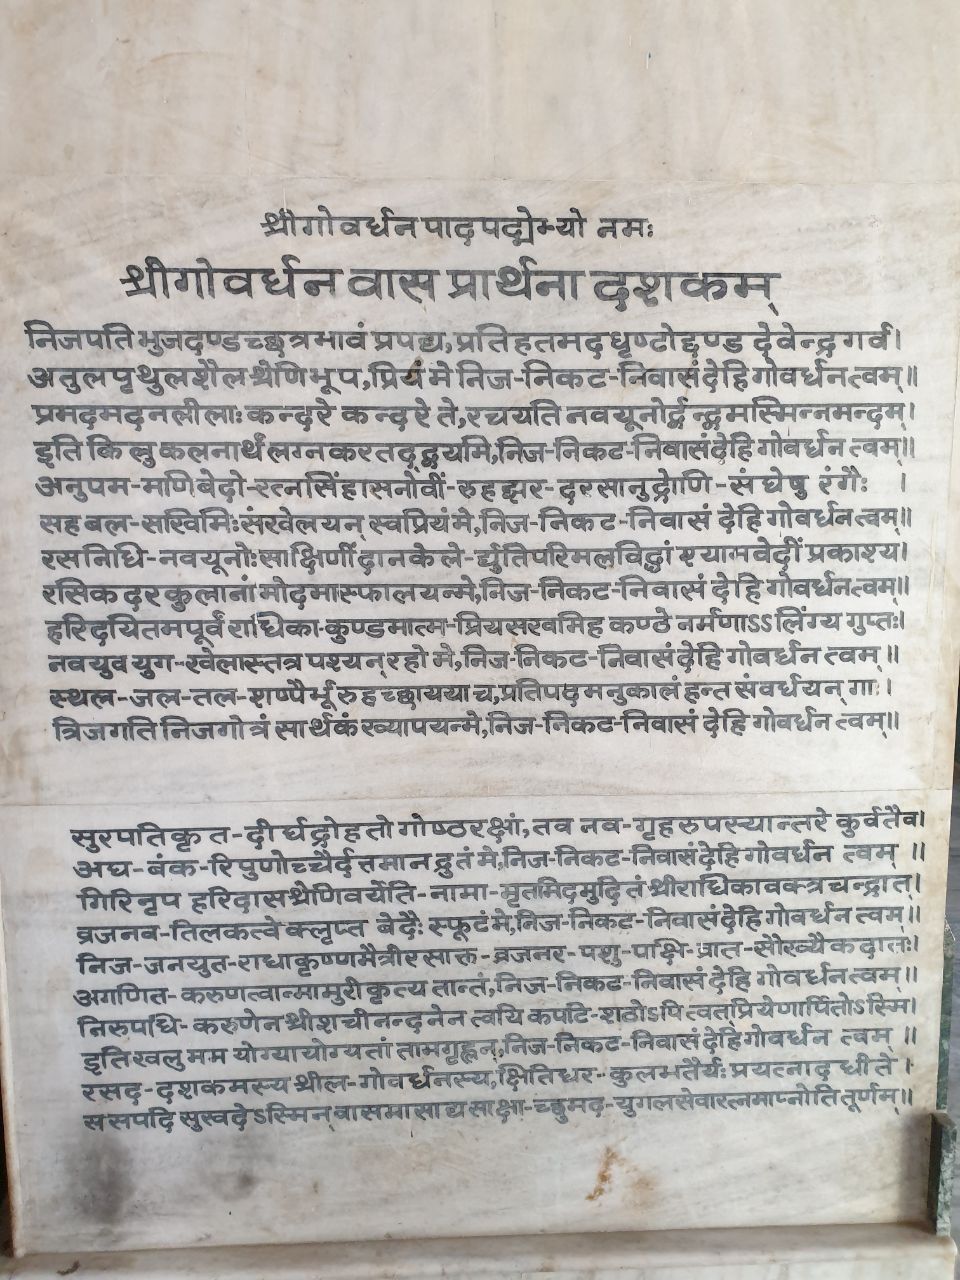 श्रीगोवर्धनपादपद्मेभ्यो नमः
श्रीगोवर्धनवासप्रार्थनादशकम्
निजपतिभुजदण्डच्छत्रभावं प्रपद्य,प्रतिहतमदधृष्टोद्दण्डदेवेन्द्रगर्व।
अतुलपृथुलशैलश्रेणिभूप,प्रियं मे निज-निकट-निवासं देहि गोवर्धन त्वम्॥
प्रमदमदनलीलाः कन्दरे कन्दरे ते,रचयति नवयूनोर्द्वन्द्वमस्मिन्नमन्दम्।
इति किलुकलनार्थं लग्नकरतद्द्वयमि,निज-निकट-निवासं देहि गोवर्धन त्वम्॥
अनुपम-मणिवेदी-रत्नसिंहासनोर्वी-रुहझर-दरसानुद्रोणि-संघेषु रंगैः ।
सह बल-सखिभिःसंखेलयन् स्वप्रियं मे,निज-निकट-निवासं देहि गोवर्धन त्वम्॥
रसनिधि-नवयूनोःसाक्षिणीं दानकेले-र्द्युतिपरिमलविद्धां श्यामवेदीं प्रकाश्य।
रसिकदरकुलानां मोदमास्फालयन्मे,निज-निकट-निवासं देहि गोवर्धन त्वम्॥
हरिदयितमपूर्वं राधिका-कुण्डमात्म-प्रियसखमिह कण्ठे नर्मणाऽऽलिंग्य गुप्तः।
नवयुवयुग-खेलास्तत्र पश्यन् रहो मे,निज-निकट-निवासं देहि गोवर्धन त्वम्॥
स्थल-जल-तल-शष्पैर्भूरुहच्छायया च,प्रतिपदमनुकालं हन्त संवर्धयन् गाः।
त्रिजगति निजगोत्रं सार्थकं ख्यापयन्मे,निज-निकट-निवासं देहि गोवर्धन त्वम्॥
सुरपतिकृत-दीर्घद्रोहतो गोष्ठरक्षां,तव नव-गृहरुपस्यान्तरे कुर्वतैव।
अघ-बंक-रिपुणोच्चैर्दत्तमान द्रुतं मे,निज-निकट-निवासं देहि गोवर्धन त्वम् ॥
गिरिनृप हरिदासश्रेणिवर्येति-नामा-मृतमिदमुदितं श्रीराधिकावक्त्रचन्द्रात्।
व्रजनव-तिलकत्वे क्लृप्त वेदैः स्फूटं मे,निज-निकट-निवासं देहि गोवर्धन त्वम्॥
निज-जनयुत-राधाकृष्णमैत्रीरसाक्त-व्रजनर-पशु-पक्षि-व्रात-सौख्यैकदातः।
अगणित-करुणत्वान्मामुरीकृत्य तान्तं,निज-निकट-निवासं देहि गोवर्धन त्वम्॥
निरुपधि-करुणेन श्रीशचीनन्दनेन त्वयि कपटि-शठोऽपि त्वत्प्रियेणार्पितोऽस्मि।
इति खलु मम योग्यायोग्यतां तामगृह्णन्,निज-निकट-निवासं देहि गोवर्धन त्वम् ॥
रसद-दशकमस्य श्रील-गोवर्धनस्य,क्षितिधर-कुलभर्तुर्यः प्रयत्नादधीते ।
स सपदि सुखदेऽस्मिन् वासमासाद्य साक्षा-च्छुभद-युगलसेवारत्नमाप्नोति तूर्णम्॥